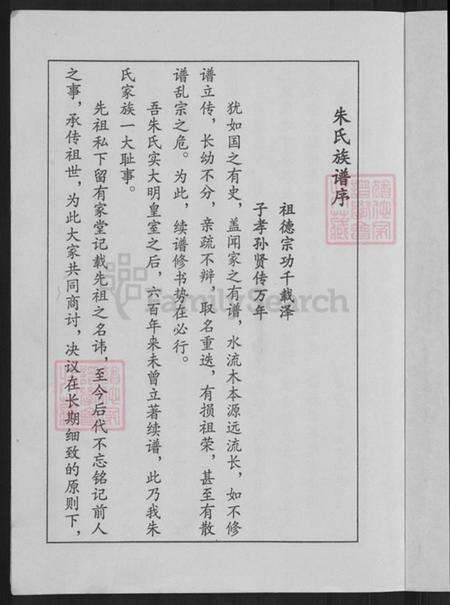 朱氏族谱序
祖德宗功千载泽
子孝孙贤传万年
犹如国之有史，盖闻家之有谱，水流木本源远流长，如不修
谱立传，长幼不分，亲疏不辩，取名重迭，有损祖荣，甚至有散
谱乱宗之危。为此，续谱修书势在必行。
吾朱氏实大明皇室之后，六百年来未曾立著续谱，此乃我朱
氏家族一大耻事。
先祖私下留有家堂记载先祖之名讳，至今后代不忘铭记前人
之事，承传祖世，为此大家共同商讨，决议在长期细致的原则下，
FamilySearch